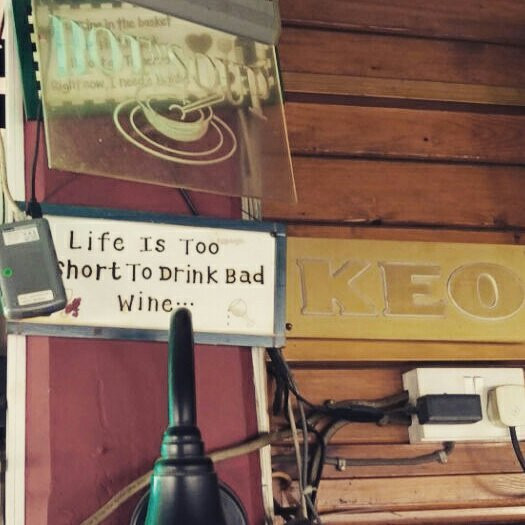 HOT SOUP
Right now, I need
Life Is Too
Short To Drink Bad
Wine...
KEO